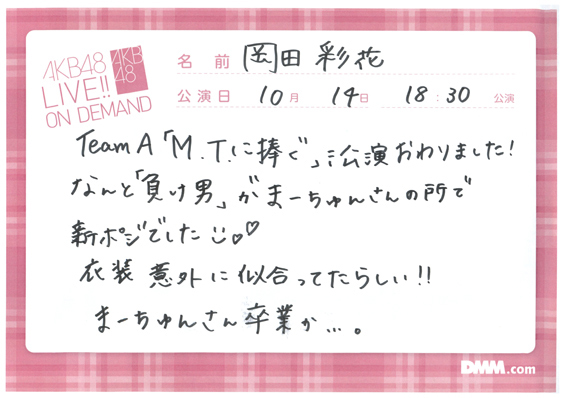 AKB48
LIVE!!
ON DEMAND
AKB
48
名前 岡田彩花
公演日 10月 14日 18:30 公演
TeamA「M.T.に捧ぐ」公演おわりました!
なんと「負け男」がまーちゅんさんの所で
新ポジでした
衣装 意外に似合ってたらしい!!
まーちゅんさん卒業か…。
DMM.com